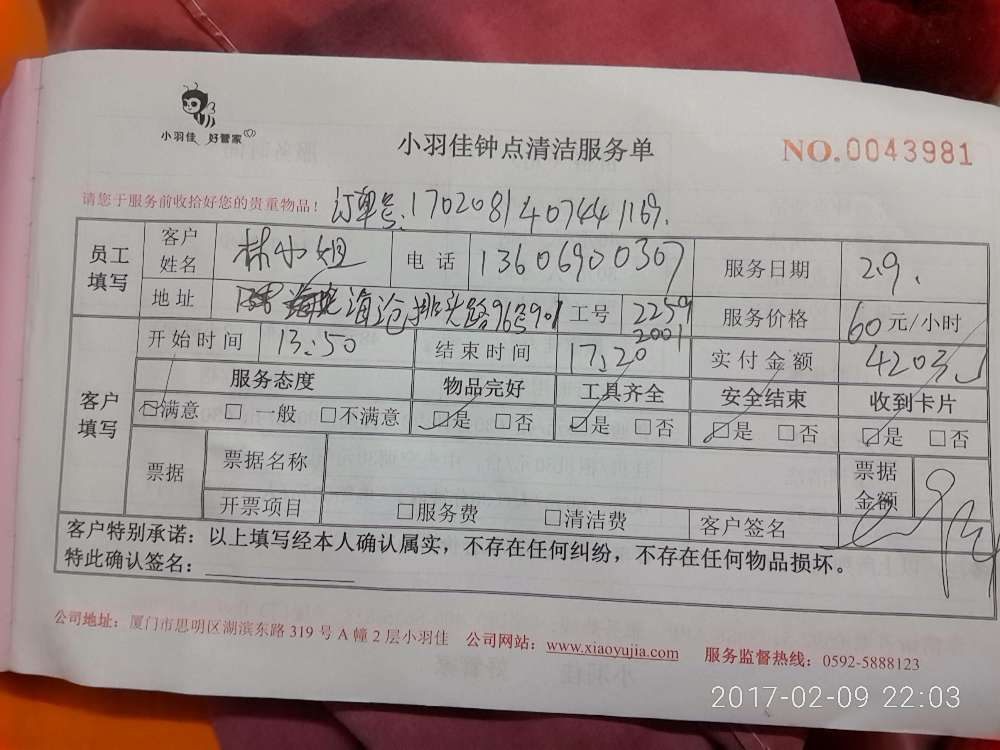 小羽佳 好管家
小羽佳钟点清洁服务单
NO.0043981
请您于服务前收拾好您的贵重物品！
订单号:17020814074441169.
员工填写
客户姓名 林小姐 电话 13606900307 服务日期 2.9.
地址 海沧排头路96号901 工号 2259 2001 服务价格 60元/小时
客户填写
开始时间 13:50 结束时间 17:20 实付金额 420
服务态度 物品完好 工具齐全 安全结束 收到卡片
□满意 □一般 □不满意 □是 □否 □是 □否 □是 □否 □是 □否
票据 票据名称 票据金额
开票项目 □服务费 □清洁费 客户签名
客户特别承诺：以上填写经本人确认属实，不存在任何纠纷，不存在任何物品损坏。
特此确认签名：
公司地址：厦门市思明区湖滨东路319号A幢2层小羽佳 公司网站：www.xiaoyujia.com 服务监督热线：0592-5888123
2017-02-09 22:03